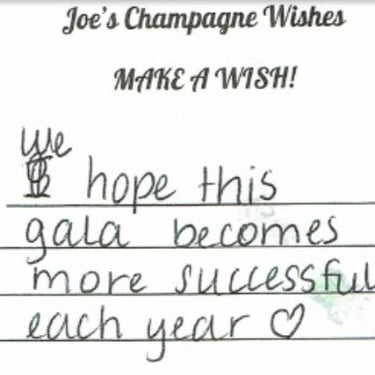 Joe's Champagne Wishes
MAKE A WISH!
We
hope this
gala becomes
more successful
each year ♡